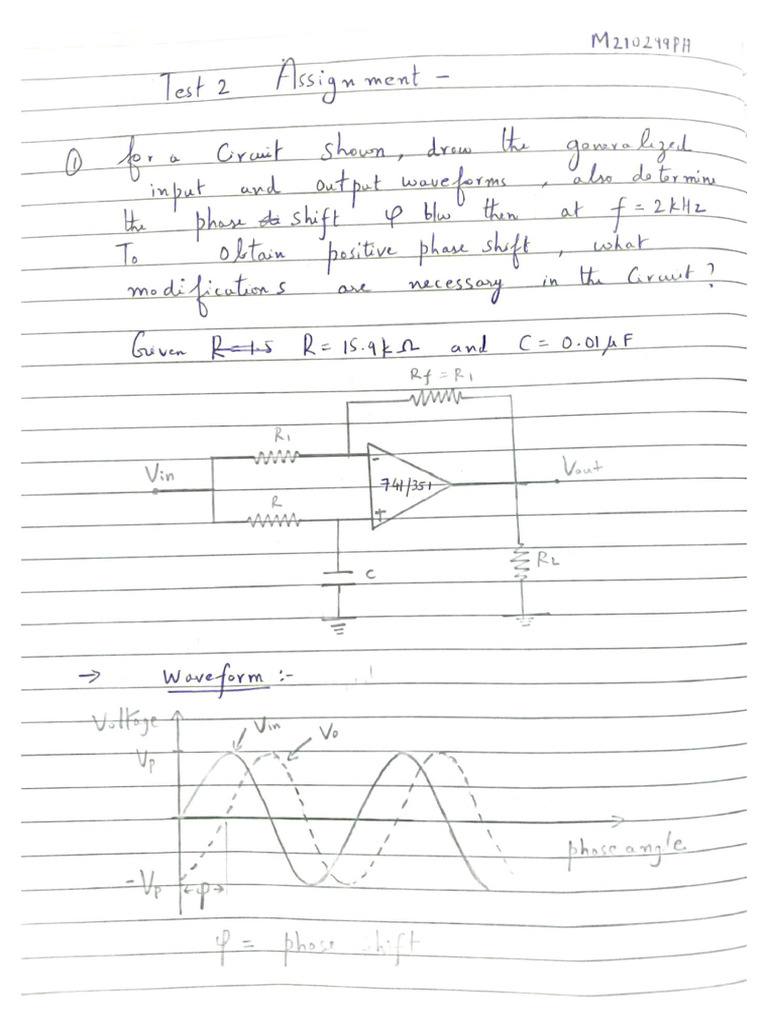 M210249PH
Test 2 Assignment -
① for a Circuit shown, draw the generalized
input and output waveforms, also determine
the phase shift φ b/w then at f = 2kHz
To obtain positive phase shift, what
modifications are necessary in the Circuit?
Given R=1.5 R = 15.9kΩ and C = 0.01μF
Rf = R1
R1
Vin
-
741/351
Vout
R
+
R2
C
→ Waveform :-
Voltage
Vin
Vo
Vp
phase angle
-Vp
φ
φ = phase shift